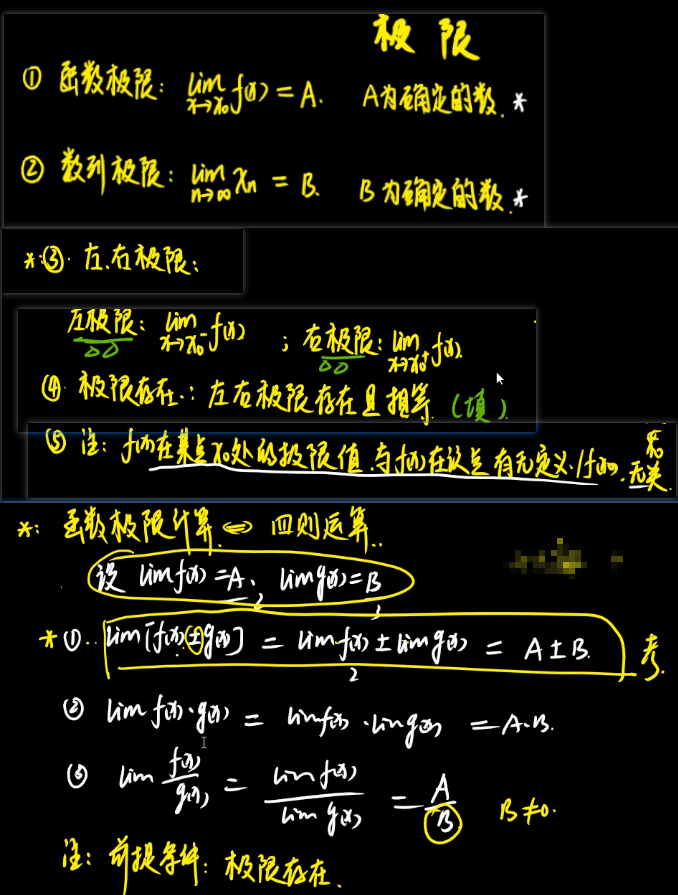 极限
① 函数极限: lim x→x₀ f(x) = A. A为确定的数.*
② 数列极限: lim n→∞ xₙ = B. B为确定的数.*
*③. 左.右极限:
左极限: lim x→x₀⁻ f(x) ; 右极限: lim x→x₀⁺ f(x).
④ 极限存在.: 左右极限存在且相等. (填)
⑤ 注: f(x)在某点x₀处的极限值.与f(x)在该点有无定义./f(x₀). 无关
*: 函数极限计算 ⇔ 四则运算..
设 lim f(x) = A, lim g(x) = B
*①.. lim[f(x)±g(x)] = lim f(x) ± lim g(x) = A±B. 考.
② lim f(x)·g(x) = lim f(x)·lim g(x) = A·B.
③ lim f(x)/g(x) = lim f(x)/lim g(x) = A/B B≠0.
注: 前提条件: 极限存在.